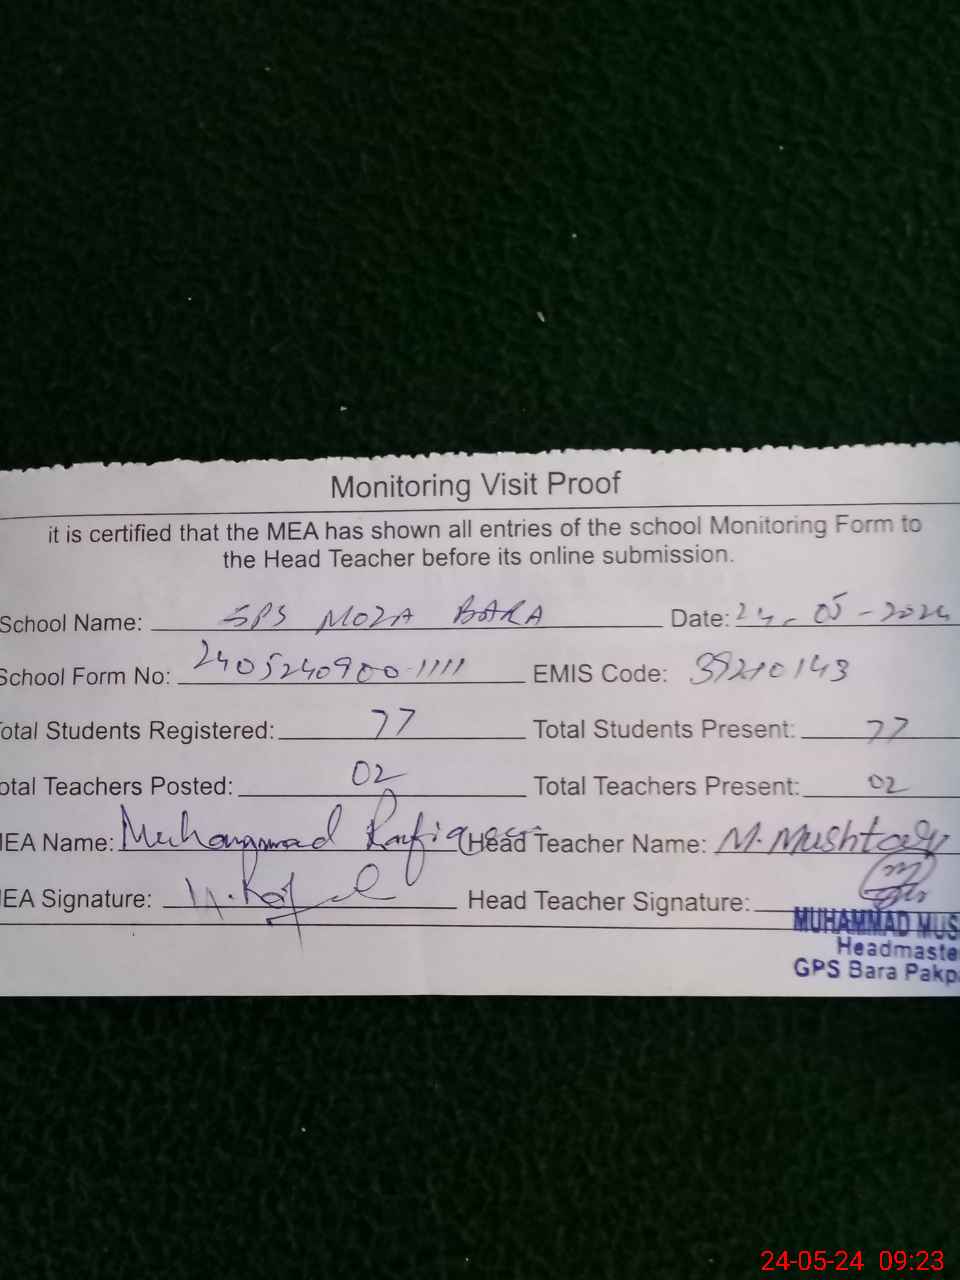 Monitoring Visit Proof
it is certified that the MEA has shown all entries of the school Monitoring Form to
the Head Teacher before its online submission.
School Name: GPS MOZA BARA Date: 24-05-2024
School Form No: 2405240900-1111 EMIS Code: 39210143
otal Students Registered: 77 Total Students Present: 77
otal Teachers Posted: 02 Total Teachers Present: 02
MEA Name: Muhammad Rafique Head Teacher Name: M. Mushtaq
EA Signature: M. Rafique Head Teacher Signature:
MUHAMMAD MUS
Headmaste
GPS Bara Pakp
24-05-24 09:23